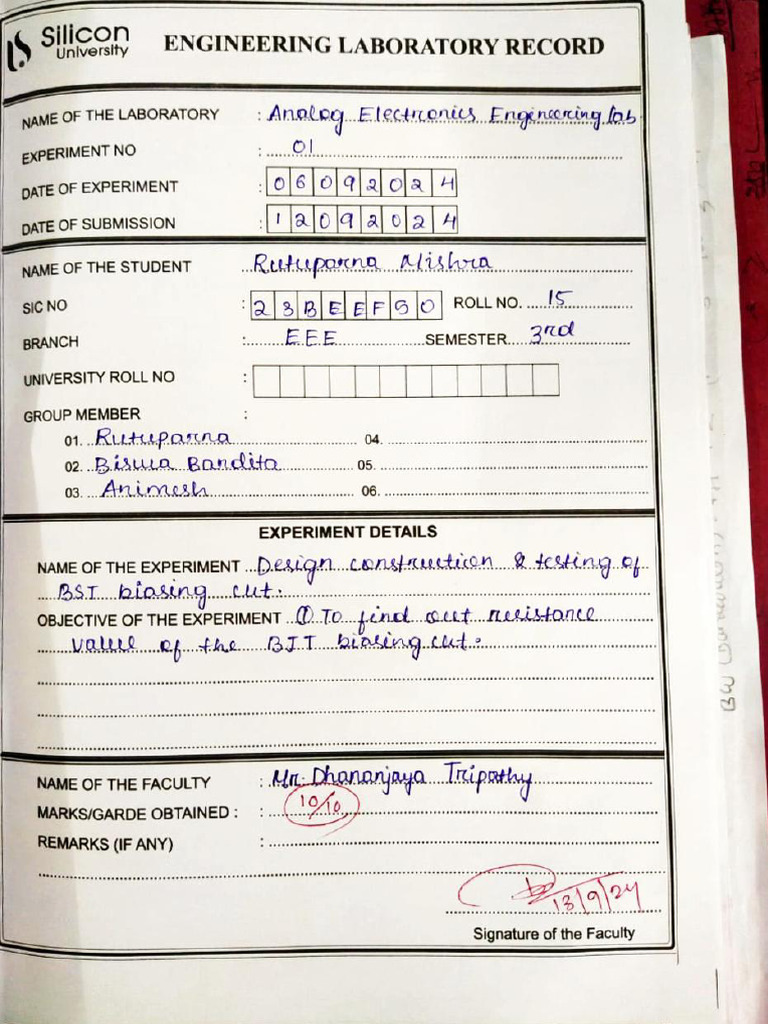 Silicon
University
ENGINEERING LABORATORY RECORD
NAME OF THE LABORATORY : Analog Electronics Engineering lab
EXPERIMENT NO : 01
DATE OF EXPERIMENT : 06092024
DATE OF SUBMISSION : 12092024
NAME OF THE STUDENT Rutuparna Mishra
SIC NO : 23BEEF50 ROLL NO. 15
BRANCH : EEE SEMESTER 3rd
UNIVERSITY ROLL NO :
GROUP MEMBER :
01. Rutuparna 04.
02. Biswa Bandita 05.
03. Animesh 06.
EXPERIMENT DETAILS
NAME OF THE EXPERIMENT Design construction & testing of
BJT biasing ckt.
OBJECTIVE OF THE EXPERIMENT ① To find out resistance
value of the BJT biasing ckt.
NAME OF THE FACULTY : Mr. Dhananjaya Tripathy
MARKS/GARDE OBTAINED : 10/10
REMARKS (IF ANY) :
13/9/24
Signature of the Faculty